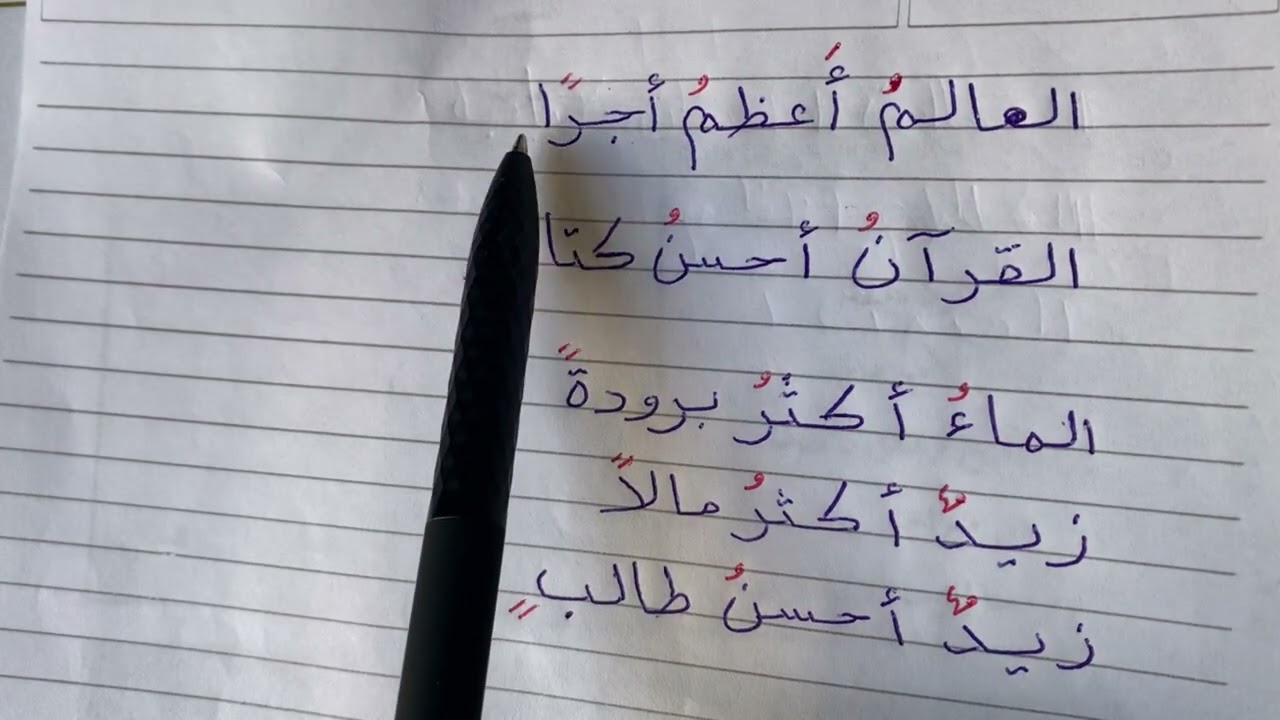 العالمُ أَعظمُ أجرًا
القرآنُ أحسنُ كتا
الماءُ أكثرُ برودةً
زيدٌ أكثرُ مالاً
زيدٌ أحسنُ طالبٍ